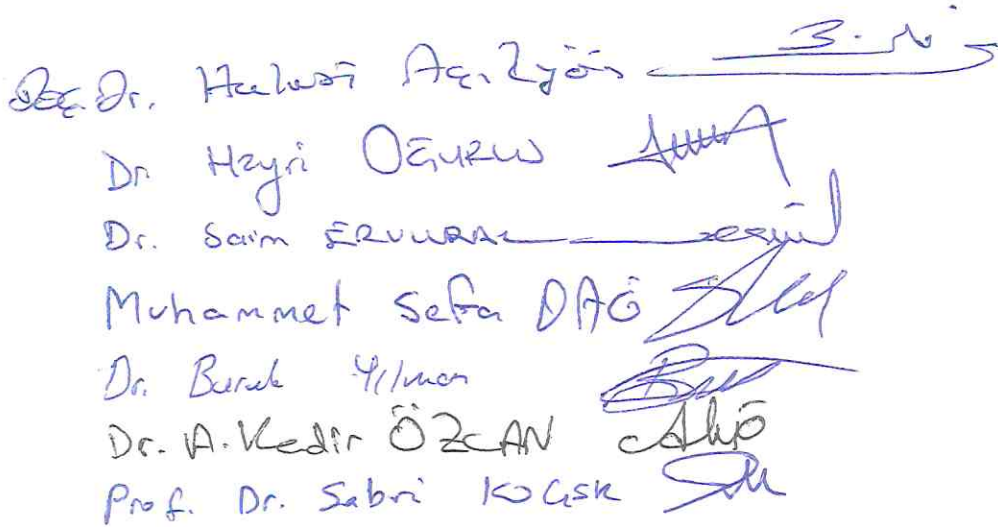 Doç. Dr. Hulusi Açıkgöz
Dr. Hayri OĞURLU
Dr. Saim ERVURAL
Muhammet Sefa DAĞ
Dr. Burak Yılmaz
Dr. A. Kadir ÖZCAN
Prof. Dr. Sabri KOÇER